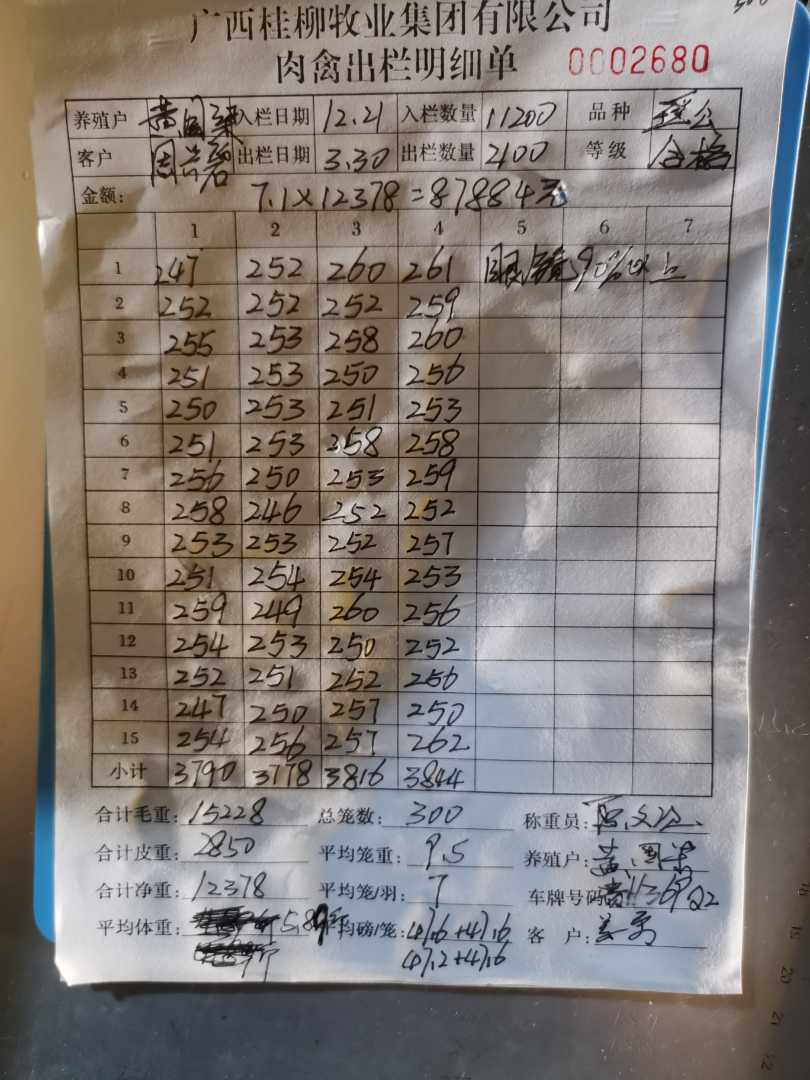 广西桂柳牧业集团有限公司
肉禽出栏明细单 0002680
养殖户 入栏日期 12.21 入栏数量 11200 品种
客户 出栏日期 3.30 出栏数量 2100 等级 合格
金额: 7.1×12378=87884元
1 2 3 4 5 6 7
1 247 252 260 261 90%以上
2 252 252 252 259
3 255 253 258 260
4 251 253 250 256
5 250 253 251 253
6 251 253 258 258
7 256 250 253 259
8 258 246 252 252
9 253 253 252 257
10 251 254 254 253
11 259 249 260 256
12 254 253 250 252
13 252 251 252 256
14 247 250 257 250
15 254 256 257 262
小计 3790 3778 3816 3844
合计毛重: 15228 总笼数: 300 称重员:
合计皮重: 2850 平均笼重: 9.5 养殖户:
合计净重: 12378 平均笼/羽: 7 车牌号码
平均体重: 5.89斤 平均磅/笼: 47.6+47.6 客户:
47.2+47.6